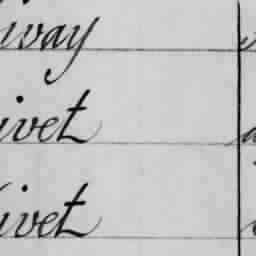 ivay
ivet
ivet